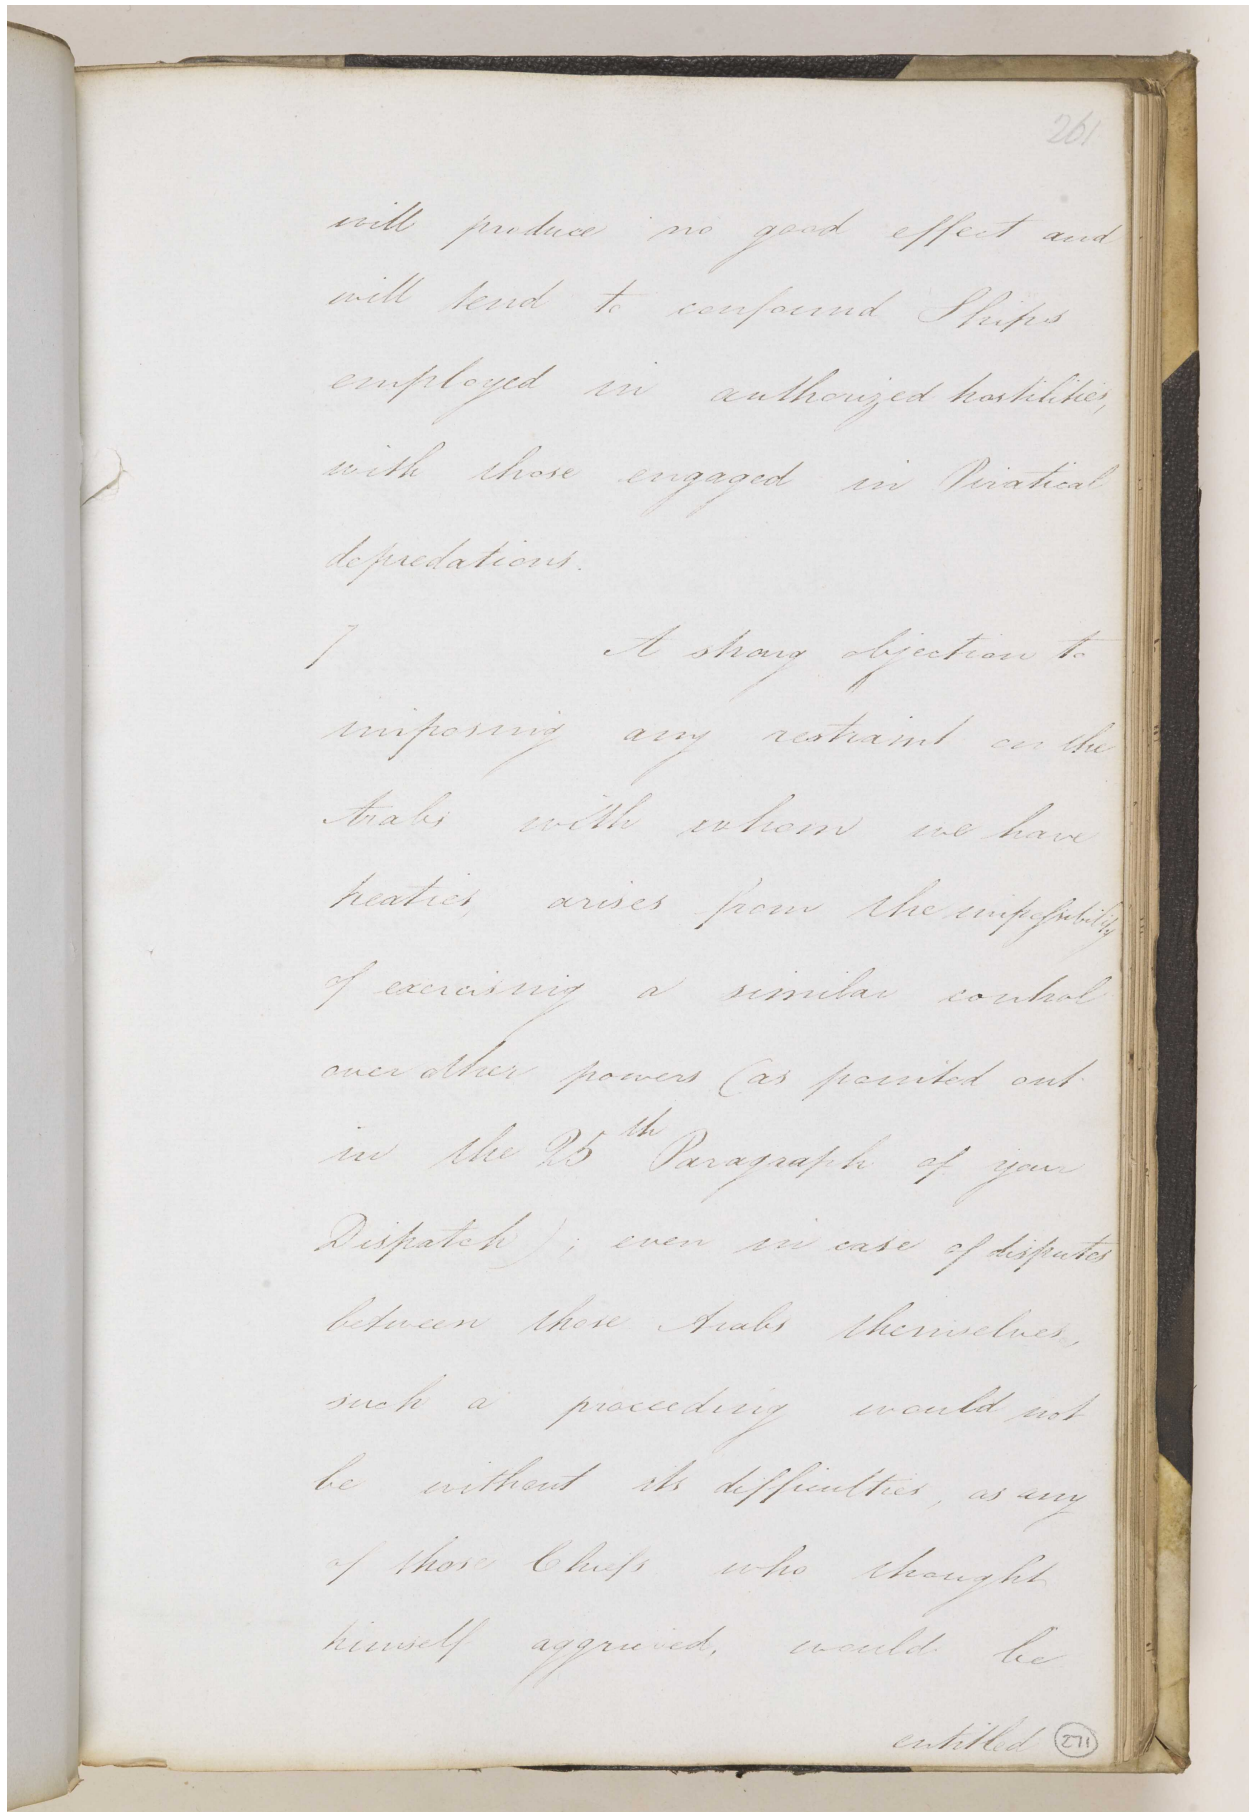 261
will produce no good effect and
will tend to confound Ships
employed in authorized hostilities,
with those engaged in Piratical
depredations.
7 A strong objection to
imposing any restraint on the
Arabs with whom we have
treaties, arises from the impossibility
of exercising a similar control
over other powers (as pointed out
in the 25th Paragraph of your
Dispatch); even in case of disputes
between those Arabs themselves,
such a proceeding would not
be without its difficulties, as any
of those Chiefs who thought
himself aggrieved, would be
entitled
271